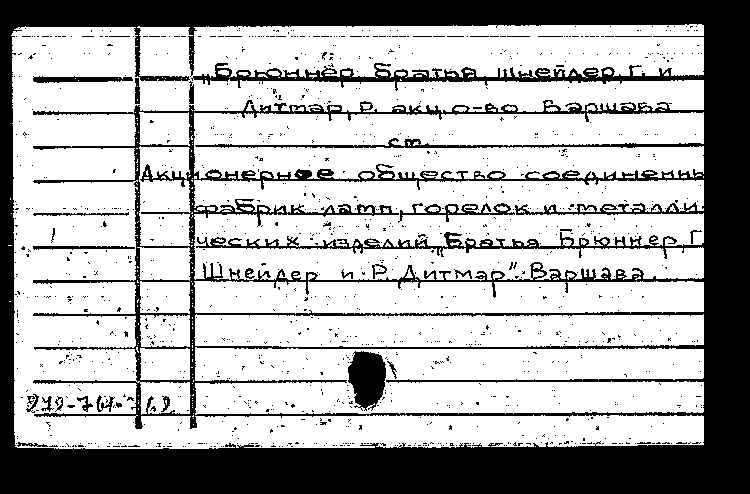 „Брюннер, Братья, Шнейдер, Г. и
Дитмар, Р. акц. о-во Варшава
см.
Акционерное общество соединенны
фабрик ламп, горелок и металли-
ческих изделий „Братья Брюннер, Г.
Шнейдер и Р. Дитмар". Варшава.